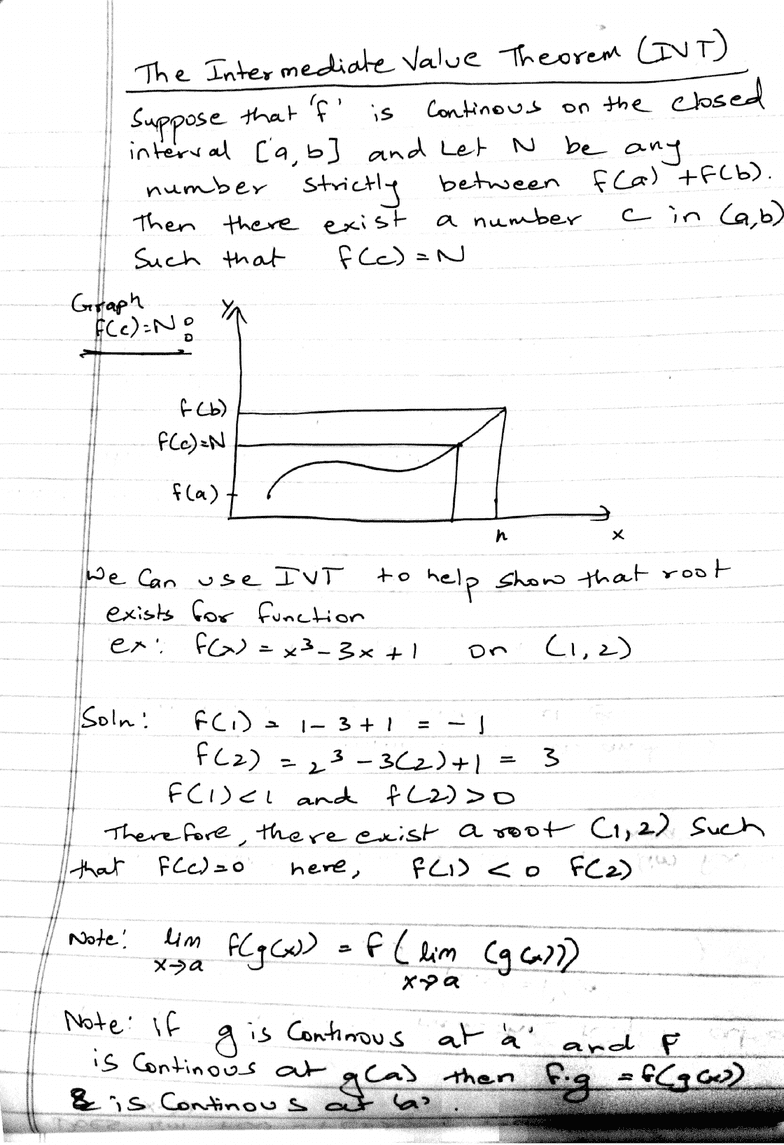 The Intermediate Value Theorem (IVT)
Suppose that 'f' is Continous on the closed
interval [a, b] and Let N be any
number strictly between f(a) + f(b).
Then there exist a number c in (a,b)
Such that f(c) = N
Graph
f(c) = N :
y
f(b)
f(c) = N
f(a)
n
x
We Can use IVT to help show that root
exists for function
ex: f(x) = x³ - 3x + 1 on (1, 2)
Soln: f(1) = 1 - 3 + 1 = - 1
f(2) = 2³ - 3(2) + 1 = 3
f(1) < 1 and f(2) > 0
Therefore, there exist a root (1, 2) Such
that f(c) = 0 here, f(1) < 0 f(2)
Note: lim f(g(x)) = f ( lim (g(x)))
x→a x→a
Note: if g is Continous at 'a' and f
is Continous at g(a) then f.g = f(g(x))
& is Continous at 'a'.